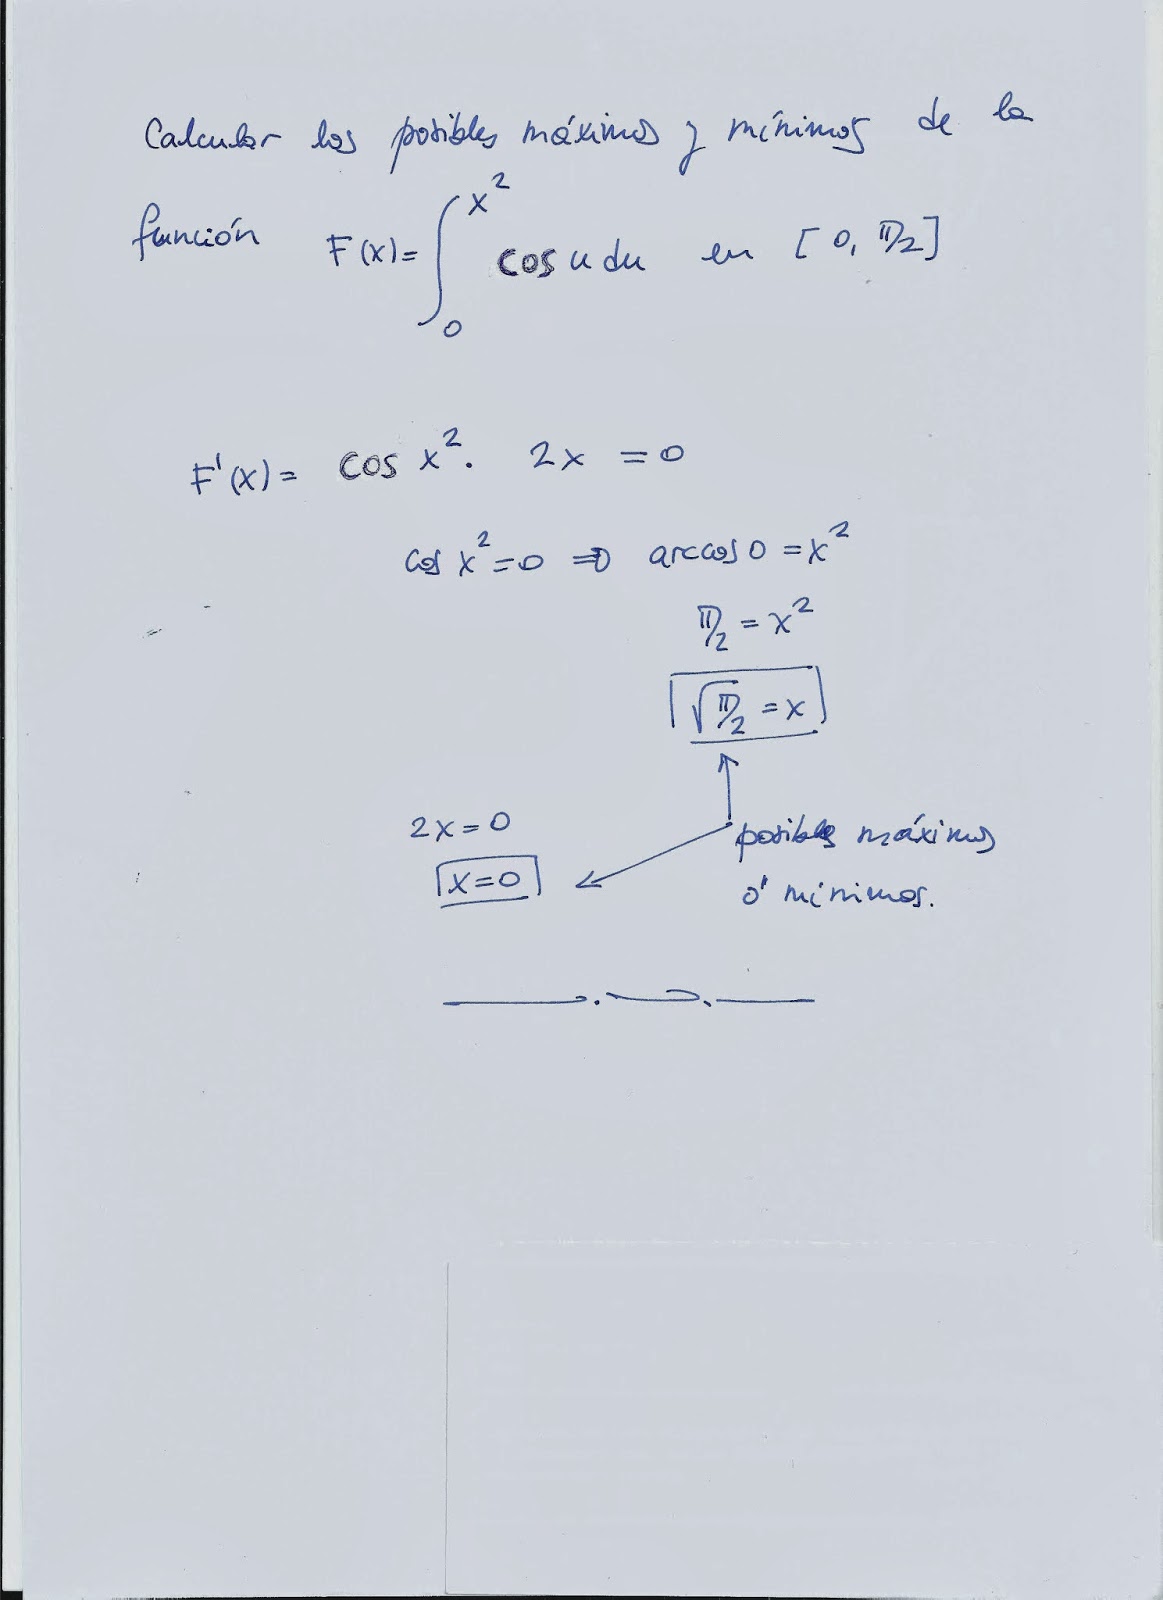 Calcular los posibles máximos y mínimos de la
función F(x)= ∫₀^{x²} cos u du en [0, π/2]
F'(x) = cos x². 2x = 0
cos x² = 0 ⇒ arccos 0 = x²
π/2 = x²
√π/2 = x
2x = 0
x = 0
posibles máximos
ó mínimos.